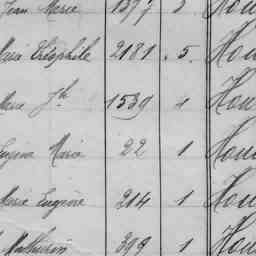 Jean Marie 1397 3 Hou
Marie Théophile 2181 . 5. Hou
Marie Jh 1539 4 Hou
Eugène Marie 22 1 Hou
Marie Eugène 214 1 Hou
Mathurin 399 1 Hou